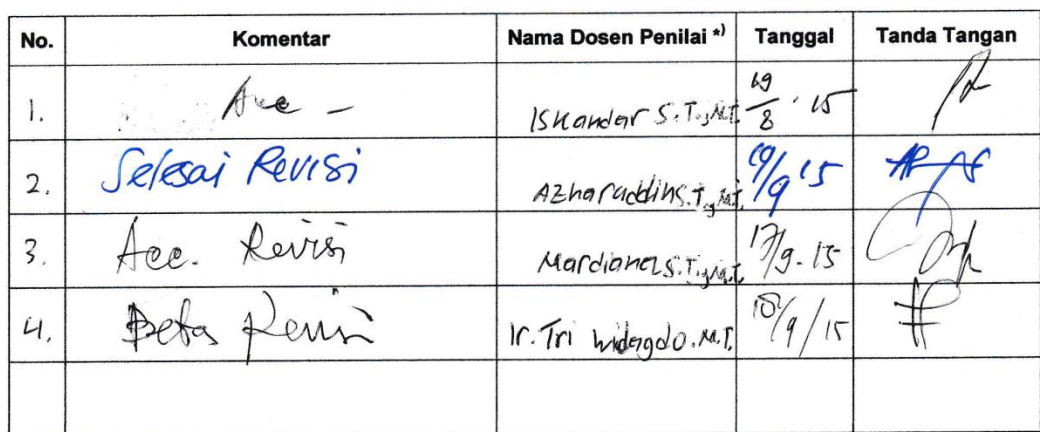 No. Komentar Nama Dosen Penilai *) Tanggal Tanda Tangan
1. Acc - Iskandar S.T.,M.T. 19/8 - 15
2. Selesai Revisi Azharuddin S.T.,M.T. 15
3. Acc. Revisi Mardiana S.T.,M.T. 17/9-15
4. Revisi Ir. Tri Widagdo.M.T. 18/9/15